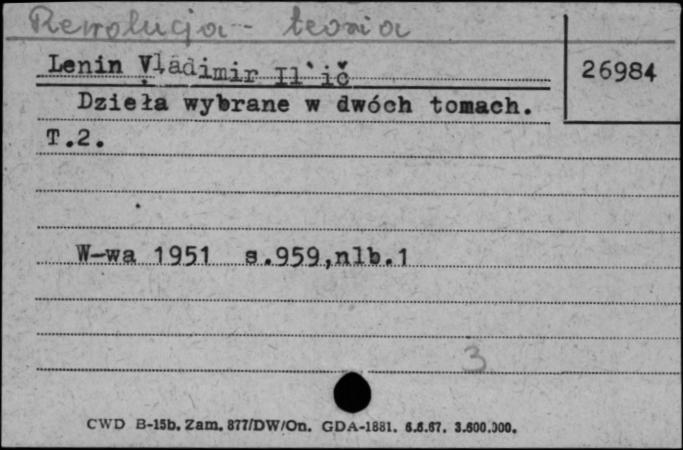 Rewolucja - teoria
Lenin Vladimir Il'ič
26984
Dzieła wybrane w dwóch tomach.
T.2.
W-wa 1951 s.959,nlb.1
3
CWD B-15b. Zam. 877/DW/On. GDA-1881. 6.6.67. 3.600.000.